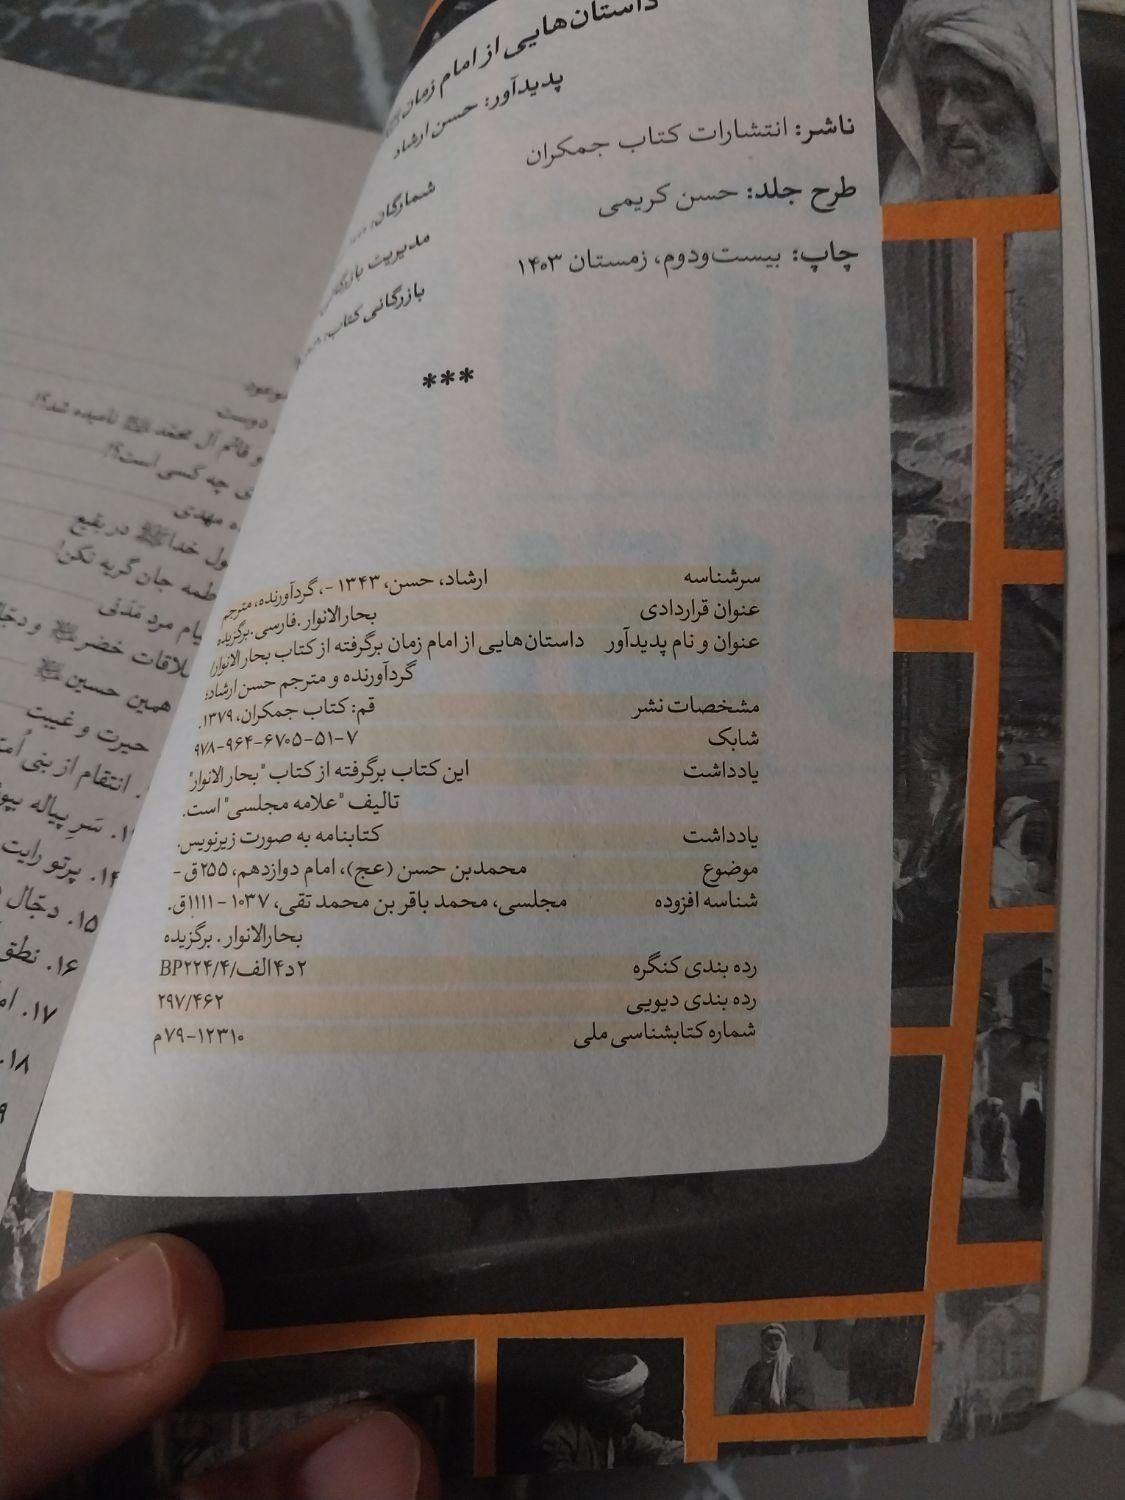 داستان‌هایی از امام زمان
پدیدآور: حسن ارشاد
ناشر: انتشارات کتاب جمکران
طرح جلد: حسن کریمی
چاپ: بیست‌ودوم، زمستان ۱۴۰۳
شمارگان:
مدیریت
بازرگانی کتاب:
***
سرشناسه ارشاد، حسن، ۱۳۴۳ -، گردآورنده، مترجم
عنوان قراردادی بحارالانوار .فارسی .برگزیده
عنوان و نام پدیدآور داستان‌هایی از امام زمان برگرفته از کتاب بحارالانوار/
گردآورنده و مترجم حسن ارشاد؛
مشخصات نشر قم: کتاب جمکران، ۱۳۷۹.
شابک ۹۷۸-۹۶۴-۶۷۰۵-۵۱-۷
یادداشت این کتاب برگرفته از کتاب "بحار الانوار"
تالیف "علامه مجلسی" است.
یادداشت کتابنامه به صورت زیرنویس.
موضوع محمدبن حسن (عج)، امام دوازدهم، ۲۵۵ق -
شناسه افزوده مجلسی، محمد باقر بن محمد تقی، ۱۰۳۷ - ۱۱۱۱ق.
بحارالانوار . برگزیده
رده بندی کنگره BP۲۲۴/۴/الف۴د۲
رده بندی دیویی ۲۹۷/۴۶۲
شماره کتابشناسی ملی ۷۹-۱۲۳۱۰م
دوست
و قائم آل محمّد ﷺ نامیده شد؟!
چه کسی است؟!
مهدی
خداﷺ در بقیع
جان گریه نکن!
مرد مَدَنی
همین حسین
حیرت و غیبت
انتقام از بنی
سَرِ پیاله
۱۴. پرتو رایت
۱۵. دجّال
۱۶. نطق
۱۷.
۱۸.